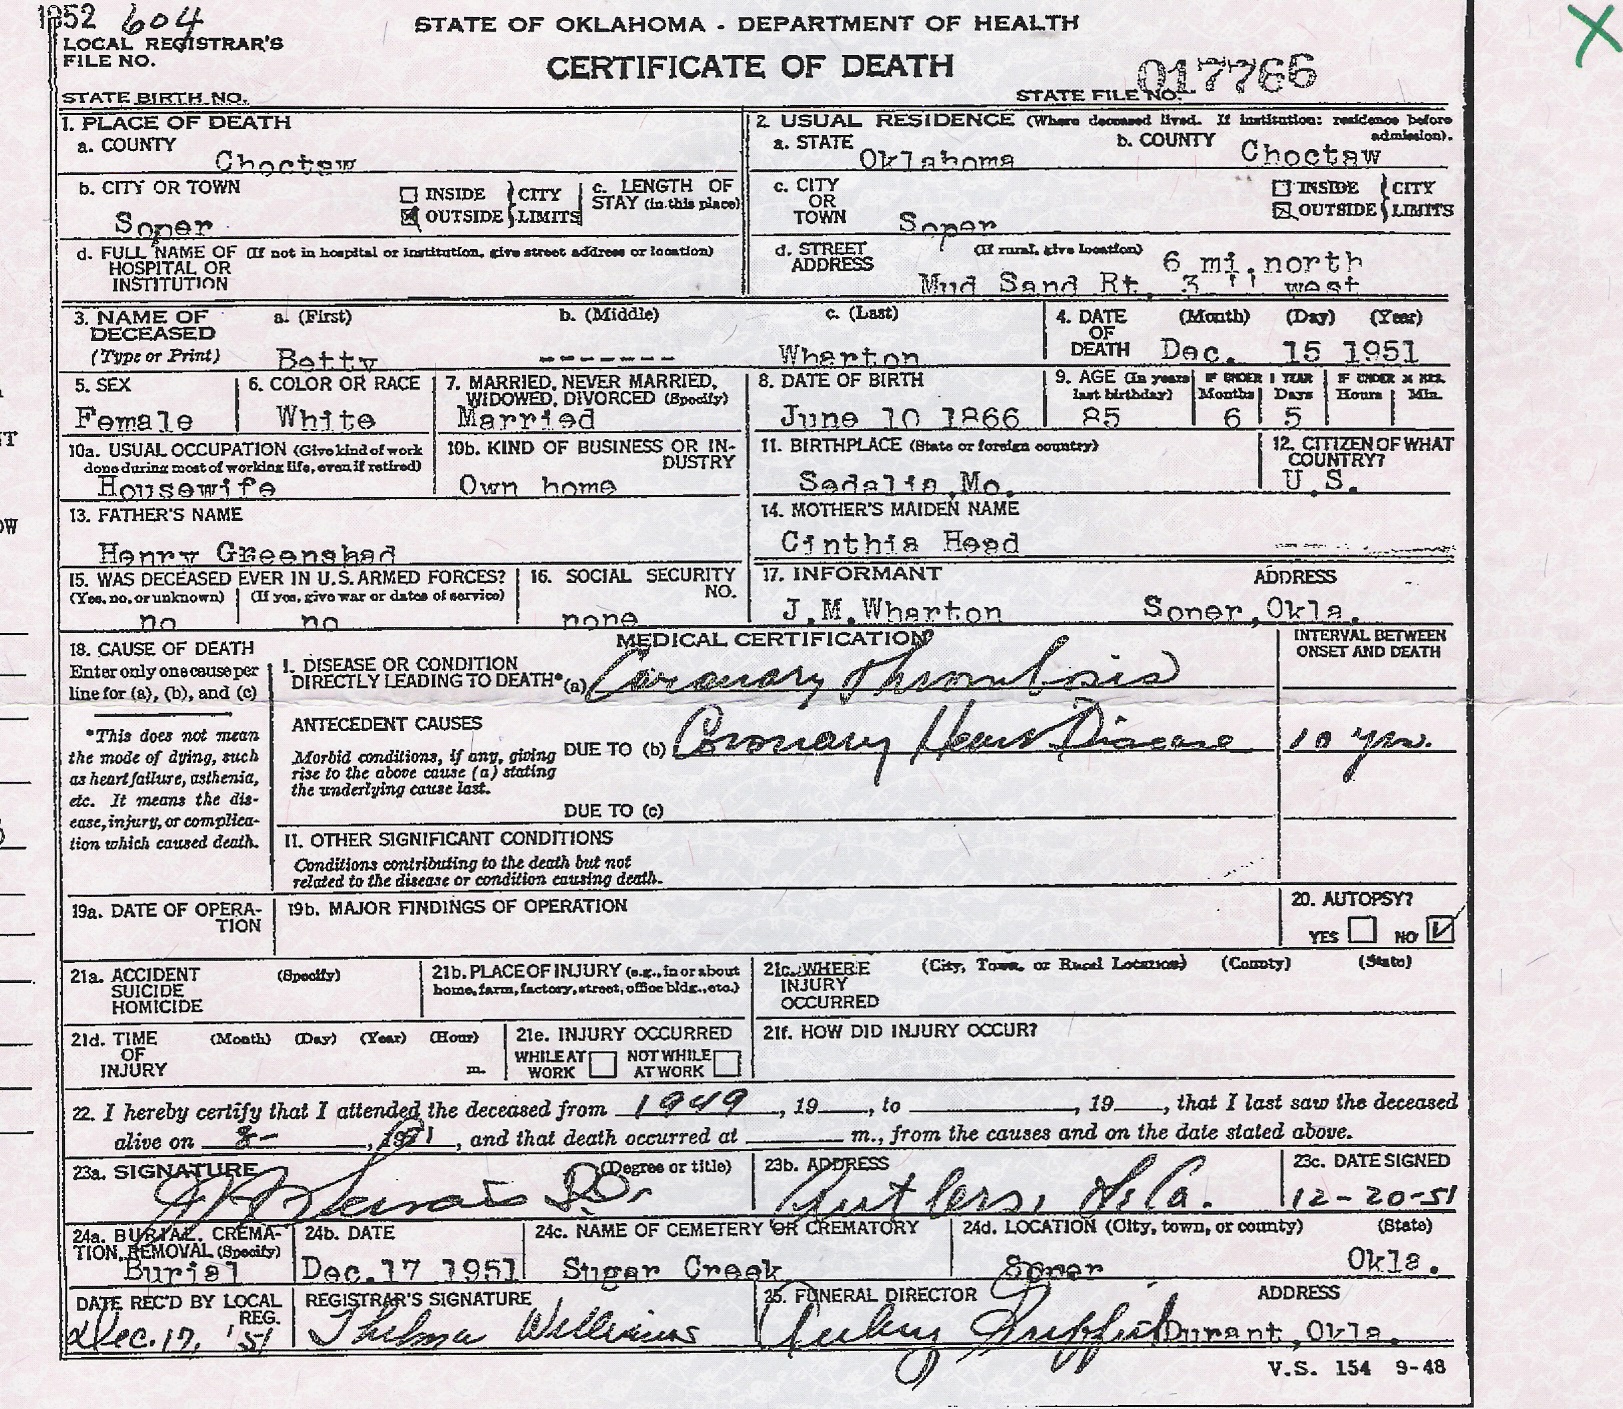 1952 604
LOCAL REGISTRAR'S
FILE NO.
STATE BIRTH NO.
STATE OF OKLAHOMA - DEPARTMENT OF HEALTH
CERTIFICATE OF DEATH
STATE FILE NO. 017766
X
1. PLACE OF DEATH
a. COUNTY
Choctaw
b. CITY OR TOWN
Soper
INSIDE
OUTSIDE
CITY
LIMITS
c. LENGTH OF
STAY (in this place)
d. FULL NAME OF (If not in hospital or institution, give street address or location)
HOSPITAL OR
INSTITUTION
2. USUAL RESIDENCE (Where deceased lived. If institution: residence before
admission).
a. STATE Oklahoma b. COUNTY Choctaw
c. CITY
OR
TOWN Soper
INSIDE
OUTSIDE
CITY
LIMITS
d. STREET (If rural, give location) 6 mi. north
ADDRESS Mud Sand Rt. 3 '' west
3. NAME OF
DECEASED
(Type or Print)
a. (First) b. (Middle) c. (Last)
Betty ------- Wharton
4. DATE
OF
DEATH
(Month) (Day) (Year)
Dec. 15 1951
5. SEX
Female
6. COLOR OR RACE
White
7. MARRIED, NEVER MARRIED,
WIDOWED, DIVORCED (Specify)
Married
8. DATE OF BIRTH
June 10 1866
9. AGE (In years
last birthday)
85
IF UNDER 1 YEAR
Months Days
6 5
IF UNDER 24 HRS.
Hours Min.
10a. USUAL OCCUPATION (Give kind of work
done during most of working life, even if retired)
Housewife
10b. KIND OF BUSINESS OR IN-
DUSTRY
Own home
11. BIRTHPLACE (State or foreign country)
Sedalia, Mo.
12. CITIZEN OF WHAT
COUNTRY?
U.S.
13. FATHER'S NAME
Henry Greenshad
14. MOTHER'S MAIDEN NAME
Cinthia Head
15. WAS DECEASED EVER IN U.S. ARMED FORCES?
(Yes, no, or unknown) (If yes, give war or dates of service)
no no
16. SOCIAL SECURITY
NO.
none
17. INFORMANT ADDRESS
J.M.Wharton Soper,Okla.
MEDICAL CERTIFICATION
INTERVAL BETWEEN
ONSET AND DEATH
18. CAUSE OF DEATH
Enter only one cause per
line for (a), (b), and (c)
*This does not mean
the mode of dying, such
as heart failure, asthenia,
etc. It means the dis-
ease, injury, or complica-
tion which caused death.
I. DISEASE OR CONDITION
DIRECTLY LEADING TO DEATH* (a) Coronary Thrombosis
ANTECEDENT CAUSES
Morbid conditions, if any, giving
rise to the above cause (a) stating
the underlying cause last.
DUE TO (b) Coronary Heart Disease 10 yrs.
DUE TO (c)
II. OTHER SIGNIFICANT CONDITIONS
Conditions contributing to the death but not
related to the disease or condition causing death.
19a. DATE OF OPERA-
TION
19b. MAJOR FINDINGS OF OPERATION
20. AUTOPSY?
YES NO
21a. ACCIDENT (Specify)
SUICIDE
HOMICIDE
21b. PLACE OF INJURY (e.g., in or about
home, farm, factory, street, office bldg., etc.)
21c. WHERE (City, Town, or Rural Location) (County) (State)
INJURY
OCCURRED
21d. TIME (Month) (Day) (Year) (Hour)
OF
INJURY m.
21e. INJURY OCCURRED
WHILE AT
WORK
NOT WHILE
AT WORK
21f. HOW DID INJURY OCCUR?
22. I hereby certify that I attended the deceased from 1949, 19__, to ____, 19__, that I last saw the deceased
alive on 8-, 1951, and that death occurred at ____ m., from the causes and on the date stated above.
23a. SIGNATURE (Degree or title)
D.O.
23b. ADDRESS
Antlers, Okla.
23c. DATE SIGNED
12-20-51
24a. BURIAL, CREMA-
TION, REMOVAL (Specify)
Burial
24b. DATE
Dec.17 1951
24c. NAME OF CEMETERY OR CREMATORY
Sugar Creek
24d. LOCATION (City, town, or county) (State)
Soper Okla.
DATE REC'D BY LOCAL
REG.
Dec. 17, '51
REGISTRAR'S SIGNATURE
Thelma Williams
25. FUNERAL DIRECTOR ADDRESS
Griffin Durant, Okla.
V.S. 154 9-48